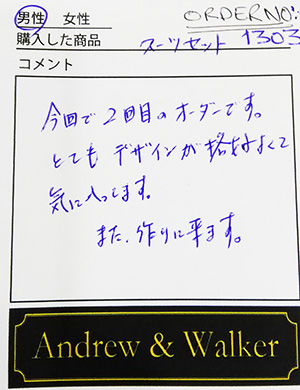 男性　女性　ORDER NO:
購入した商品　スーツセット　1303
コメント
今回で2回目のオーダーです。
とてもデザインが格好よくて
気に入ってます。
また、作りに来ます。
Andrew & Walker